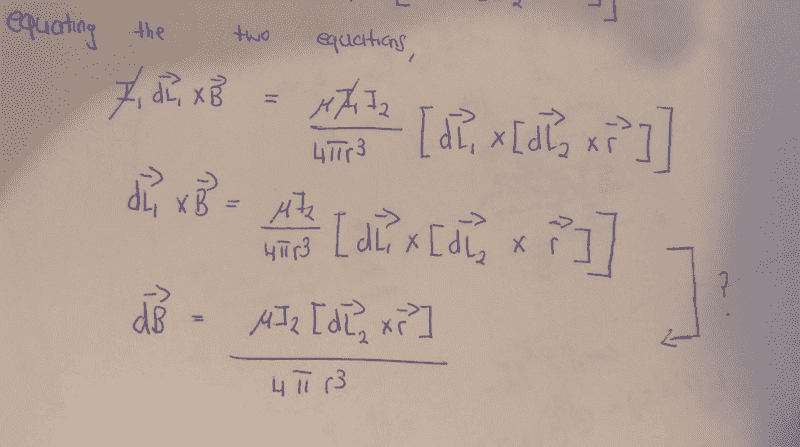 equating the two equations,
I₁ dL⃗₁ × B⃗ = μI₁I₂ / 4πr³ [dL⃗₁ × [dL⃗₂ × r⃗]]
dL⃗₁ × B⃗ = μI₂ / 4πr³ [dL⃗₁ × [dL⃗₂ × r⃗]]
dB⃗ = μI₂ [dL⃗₂ × r⃗] / 4πr³
?